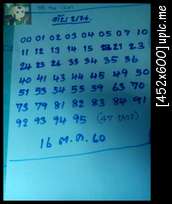 00 01 02 03 04 05 07 10
11 12 13 14 15 21 23
24 25 26 33 34 35 36
40 41 43 44 45 49 50
51 53 54 55 59 63 70
73 79 81 82 83 84 91
92 93 94 95 (47 ชุด)
16 ต.ค 60
[452x600] upic.me